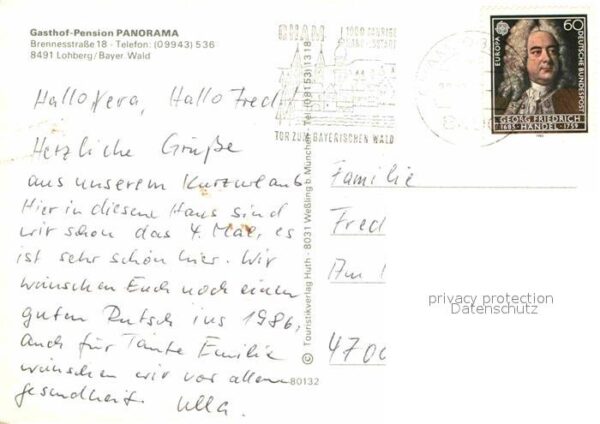 Gasthof-Pension PANORAMA
Brennesstraße 18 - Telefon: (09943) 536
8491 Lohberg/Bayer. Wald
Hallo Vera, Hallo Fred
Herzliche Grüße
aus unserem Kurzurlaub
Hier in diesem Haus sind
wir schon das 4. Mal, es
ist sehr schön hier. Wir
wünschen Euch noch einen
guten Rutsch ins 1986,
auch für Tante Emilie
wünschen wir vor allem
gesundheit. Ulla.
© Touristikverlag Huth · 8031 Weßling b. München · Tel. (08153) 1318
80132
CHAM
1000 JÄHRIGE
TOR ZUM BAYERISCHEN WALD
EUROPA
60
DEUTSCHE BUNDESPOST
GEORG FRIEDRICH
1685 HÄNDEL · 1759
Familie
Fred
Am
4700
privacy protection
Datenschutz